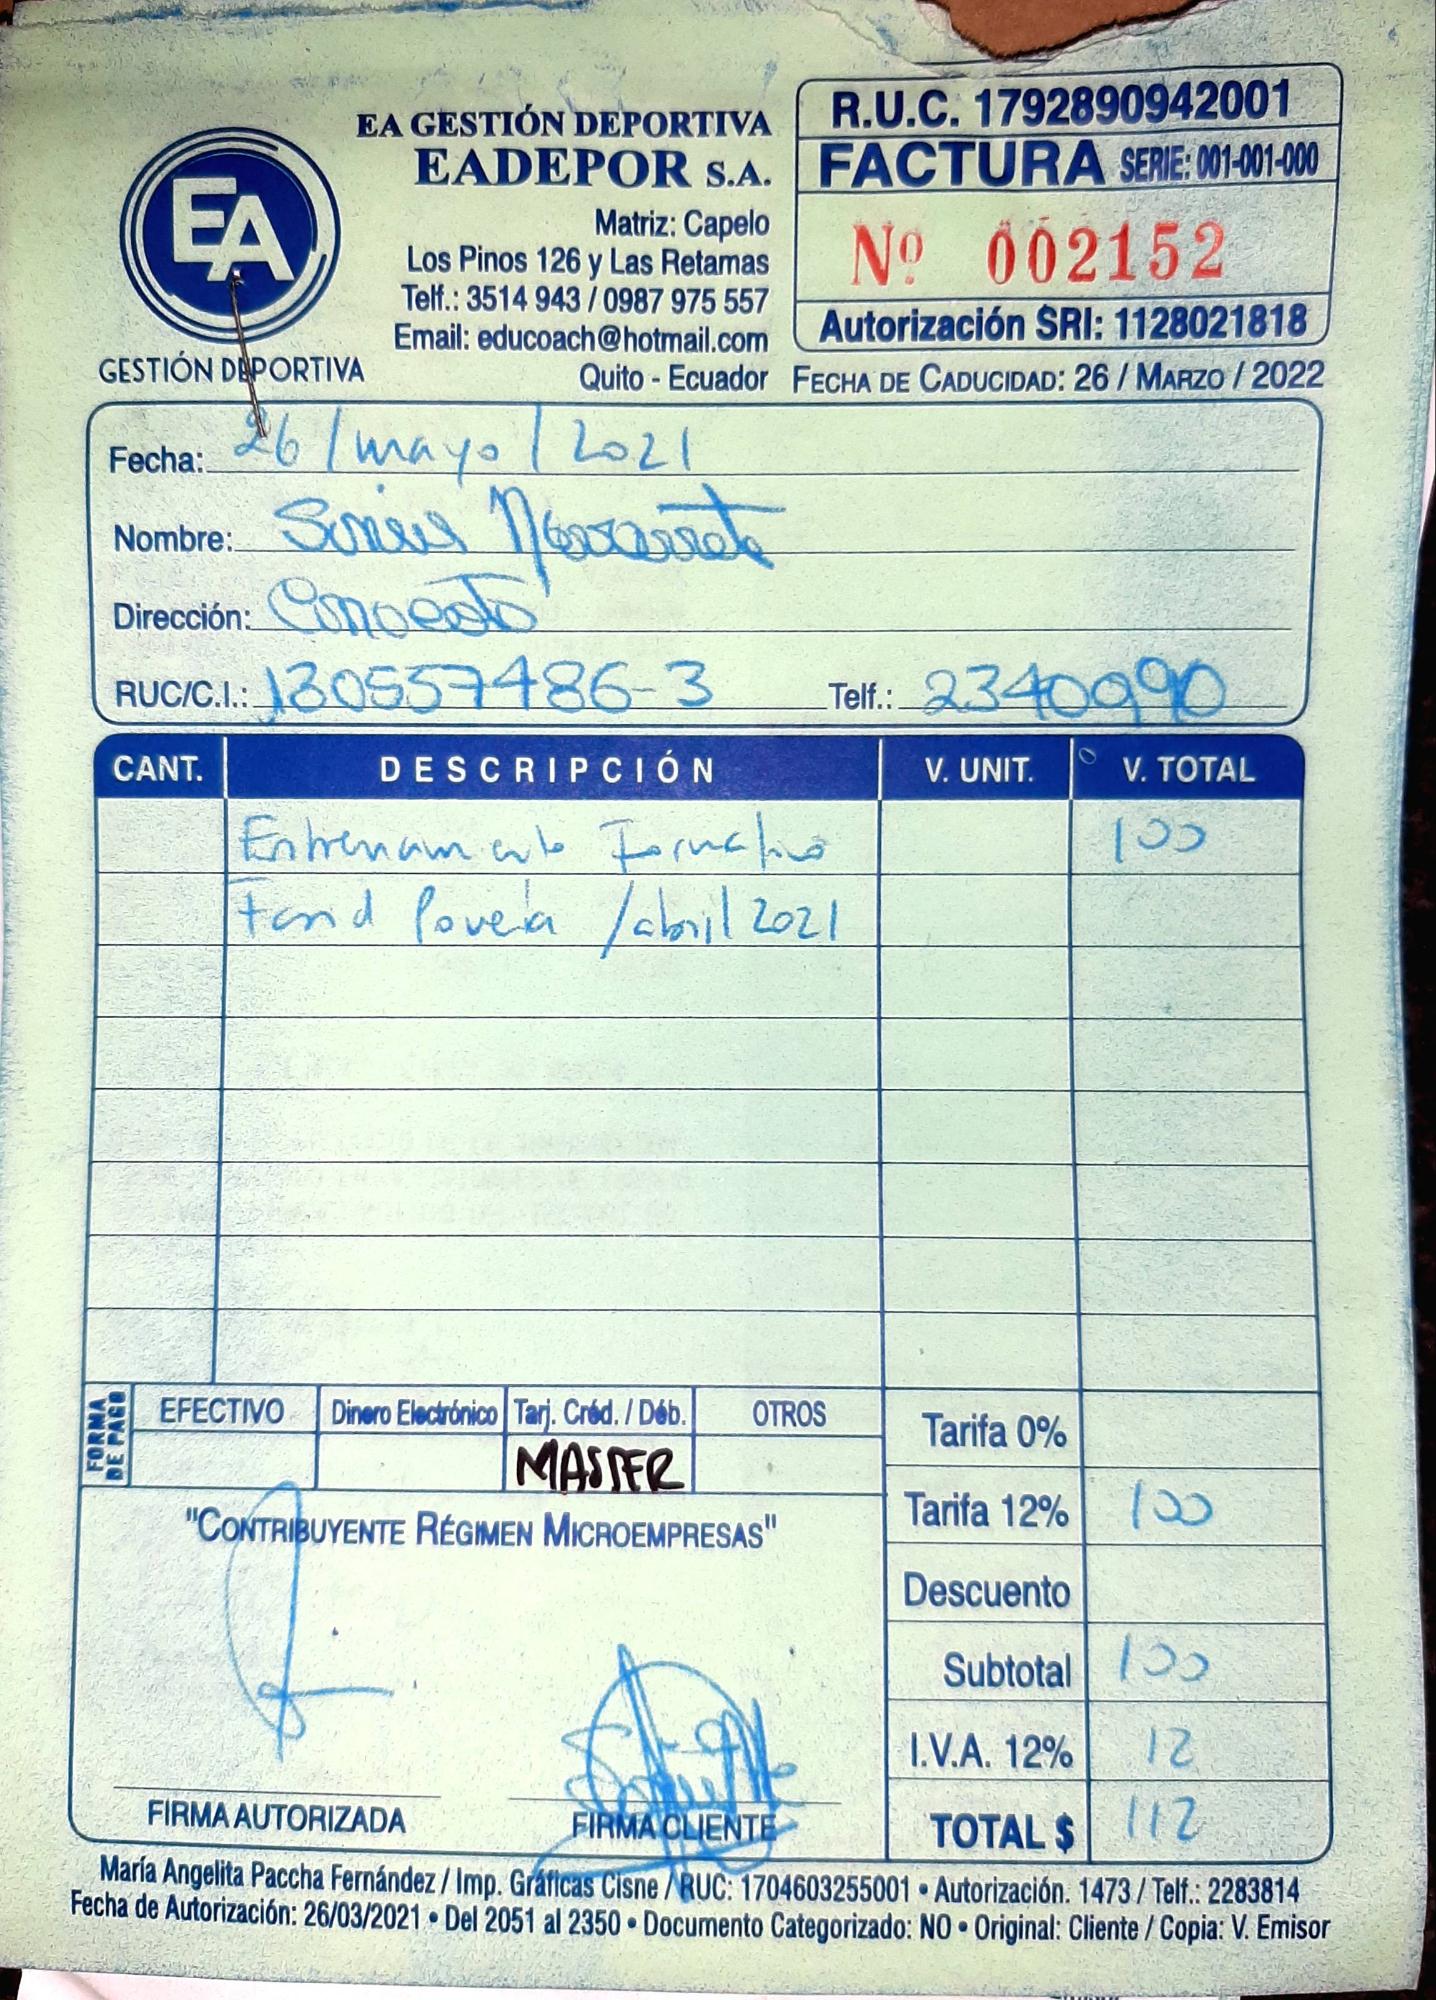 EA GESTIÓN DEPORTIVA
EADEPOR S.A.
Matriz: Capelo
Los Pinos 126 y Las Retamas
Telf.: 3514 943 / 0987 975 557
Email: educoach@hotmail.com
Quito - Ecuador
EA
GESTIÓN DEPORTIVA
R.U.C. 1792890942001
FACTURA SERIE: 001-001-000
Nº 002152
Autorización SRI: 1128021818
FECHA DE CADUCIDAD: 26 / MARZO / 2022
Fecha: 26/mayo/2021
Nombre:
Dirección: Conocoto
RUC/C.I.: 130557486-3 Telf.: 2340990
CANT. DESCRIPCIÓN V. UNIT. V. TOTAL
Entrenamiento Formativo 100
/abril 2021
FORMA DE PAGO
EFECTIVO Dinero Electrónico Tarj. Créd. / Déb. OTROS
MASTER
Tarifa 0%
Tarifa 12% 100
"CONTRIBUYENTE RÉGIMEN MICROEMPRESAS"
Descuento
Subtotal 100
I.V.A. 12% 12
TOTAL $ 112
FIRMA AUTORIZADA FIRMA CLIENTE
María Angelita Paccha Fernández / Imp. Gráficas Cisne / RUC: 1704603255001 • Autorización. 1473 / Telf.: 2283814
Fecha de Autorización: 26/03/2021 • Del 2051 al 2350 • Documento Categorizado: NO • Original: Cliente / Copia: V. Emisor